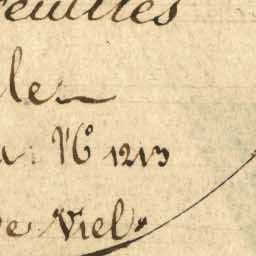 feuilles
le
a. Nº 1213
de Viel